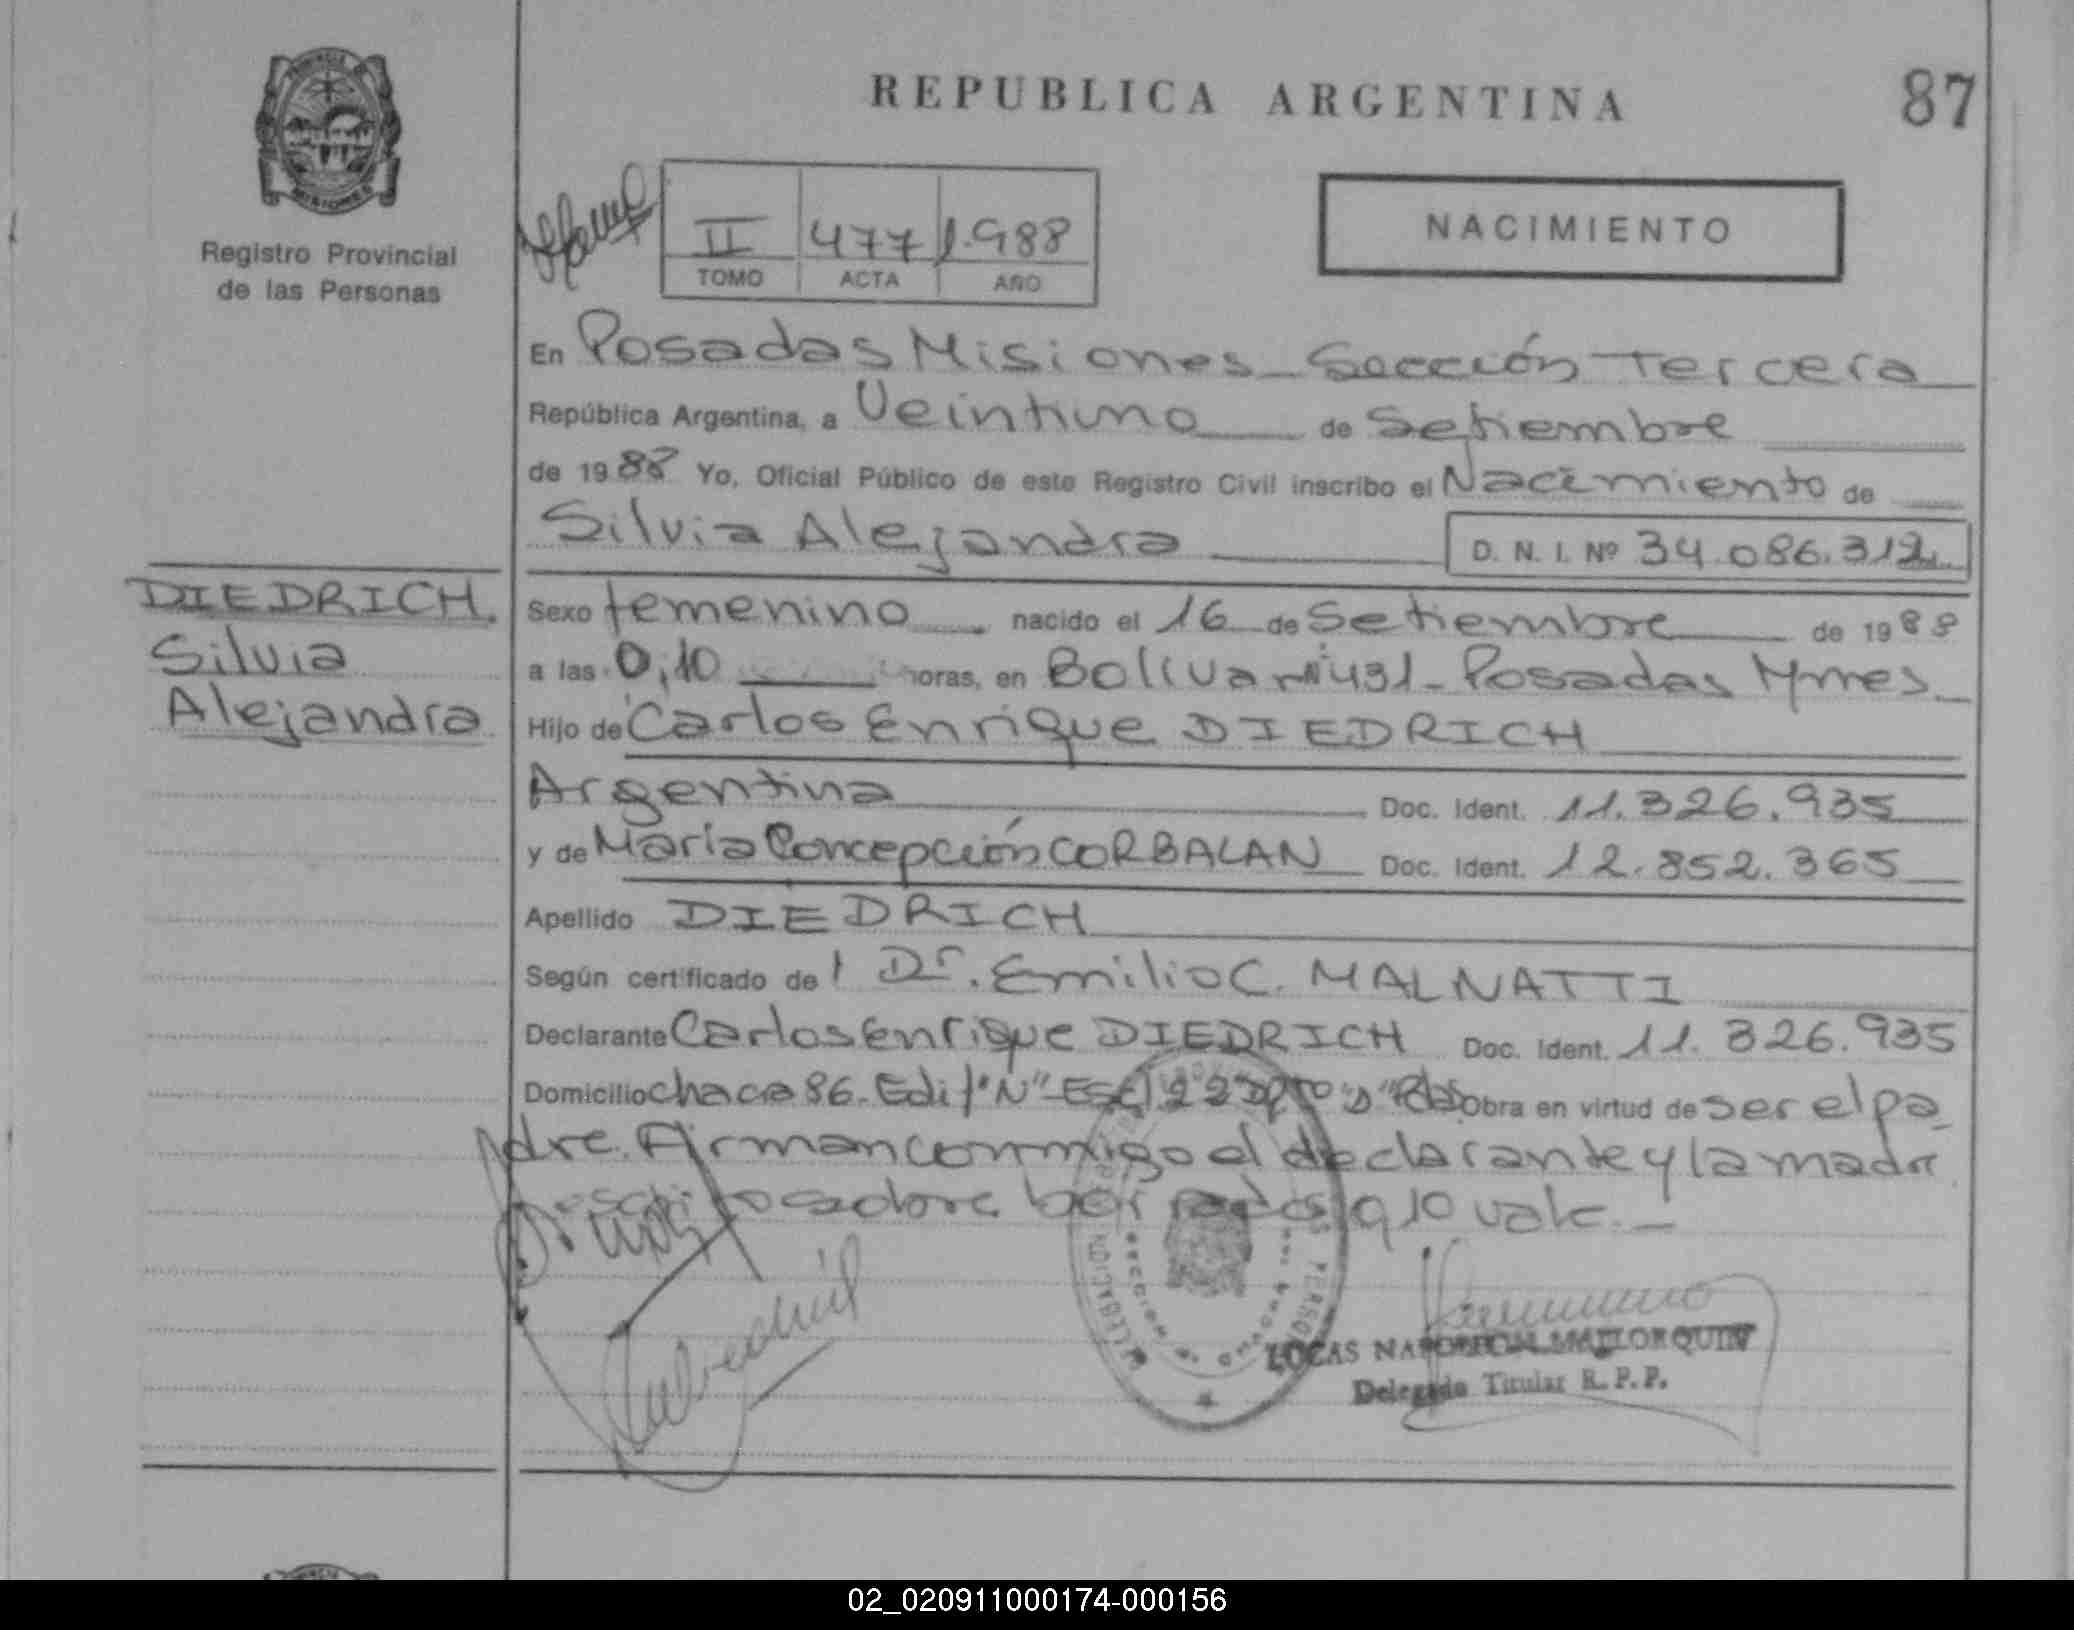 REPUBLICA ARGENTINA
87
MISIONES
Registro Provincial
de las Personas
II 477 1.988
TOMO ACTA AÑO
NACIMIENTO
En Posadas Misiones Sección Tercera
República Argentina, a Veintiuno de Setiembre
de 1988 Yo, Oficial Público de este Registro Civil inscribo el Nacimiento de
Silvia Alejandra D. N. I. Nº 34.086.312
DIEDRICH.
Silvia
Alejandra
Sexo femenino nacido el 16 de Setiembre de 1988
a las 0,10 horas, en Bolívar Nº 431 - Posadas Mnes
Hijo de Carlos Enrique DIEDRICH
Argentina Doc. Ident. 11.326.935
y de María Concepción CORBALAN Doc. Ident. 12.852.365
Apellido DIEDRICH
Según certificado de l Dr. Emilio C. MALNATTI
Declarante Carlos Enrique DIEDRICH Doc. Ident. 11.326.935
Domicilio chacra 86. Edif "N" Esc 22 Dpto "D" Pdas Obra en virtud de ser el pa
dre. Firman conmigo el declarante y la madre
escritos sobre borrados 9 10 vale.
LUCAS NAPOLEON MALLORQUIN
Delegado Titular R. P. P.
02_020911000174-000156